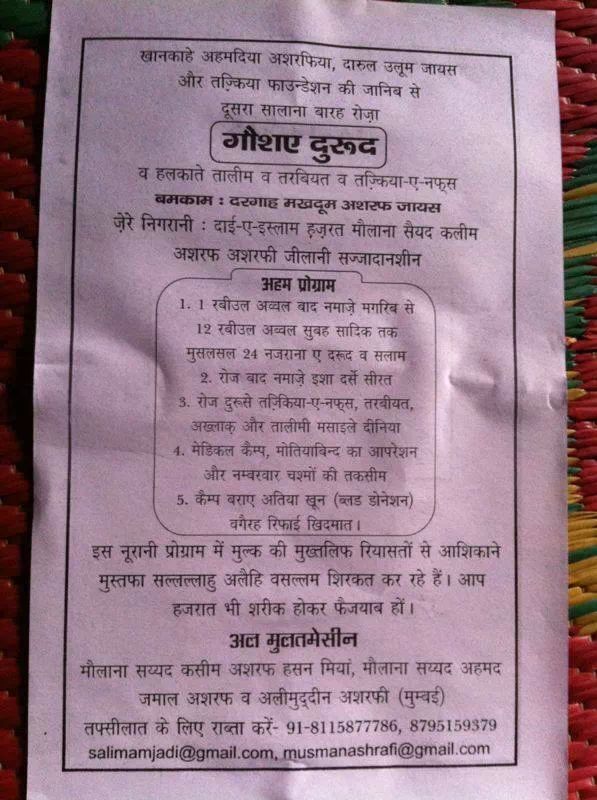 खानकाहे अहमदिया अशरफिया, दारुल उलूम जायस
और तज़्किया फाउन्डेशन की जानिब से
दूसरा सालाना बारह रोज़ा
गौशए दुरूद
व हलकाते तालीम व तरबियत व तज़्किया-ए-नफ्स
बमकाम : दरगाह मखदूम अशरफ जायस
ज़ेरे निगरानी : दाई-ए-इस्लाम हज़रत मौलाना सैयद कलीम
अशरफ अशरफी जीलानी सज्जादानशीन
अहम प्रोग्राम
1. 1 रबीउल अव्वल बाद नमाजे़ मगरिब से
12 रबीउल अव्वल सुबह सादिक तक
मुसलसल 24 नजराना ए दरूद व सलाम
2. रोज बाद नमाजे़ इशा दर्से सीरत
3. रोज दुरूसे तज़िकिया-ए-नफ्स, तरबीयत,
अख्लाक् और तालीमी मसाइले दीनिया
4. मेडिकल कैम्प, मोतियाबिन्द का आपरेशन
और नम्बरवार चश्मों की तकसीम
5. कैम्प बराए अतिया खून (ब्लड डोनेशन)
वगैरह रिफाई खिदमात।
इस नूरानी प्रोग्राम में मुल्क की मुख्तलिफ रियासतों से आशिकाने
मुस्तफा सल्लल्लाहु अलैहि वसल्लम शिरकत कर रहे हैं। आप
हजरात भी शरीक होकर फैजयाब हों।
अल मुलतमेसीन
मौलाना सय्यद कसीम अशरफ हसन मियां, मौलाना सय्यद अहमद
जमाल अशरफ व अलीमुद्दीन अशरफी (मुम्बई)
तफ्सीलात के लिए राब्ता करें- 91-8115877786, 8795159379
salimamjadi@gmail.com, musmanashrafi@gmail.com